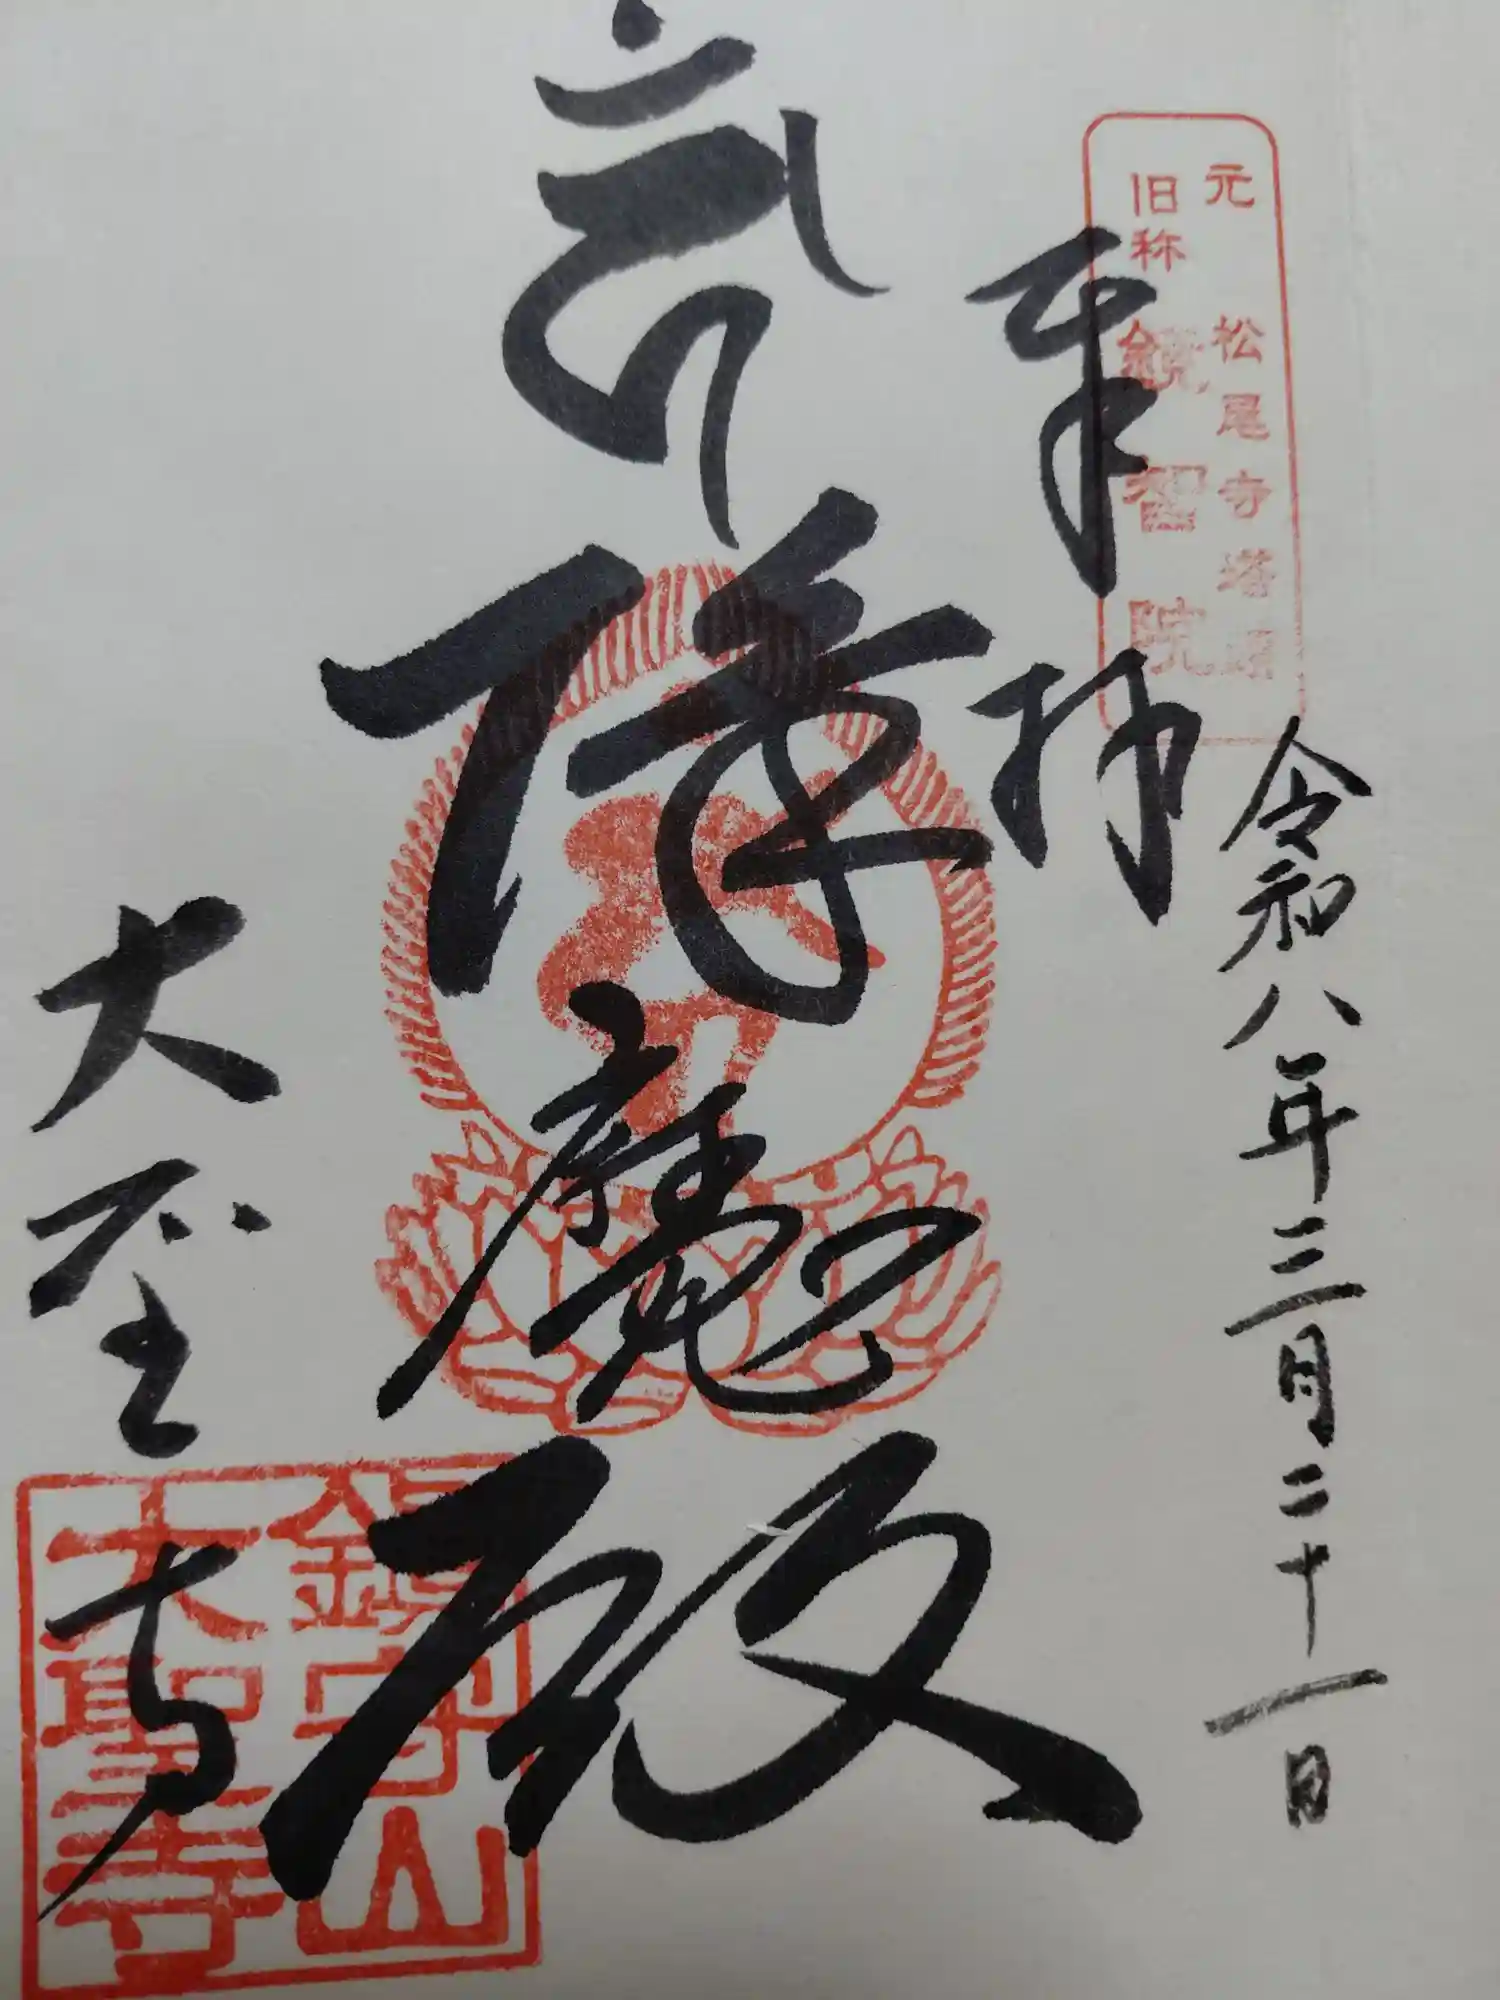 元 松尾寺塔頭
旧称 鏡智院
令和八年三月二十一日
奉拝
降魔殿
大聖寺
鎮守山
大聖寺